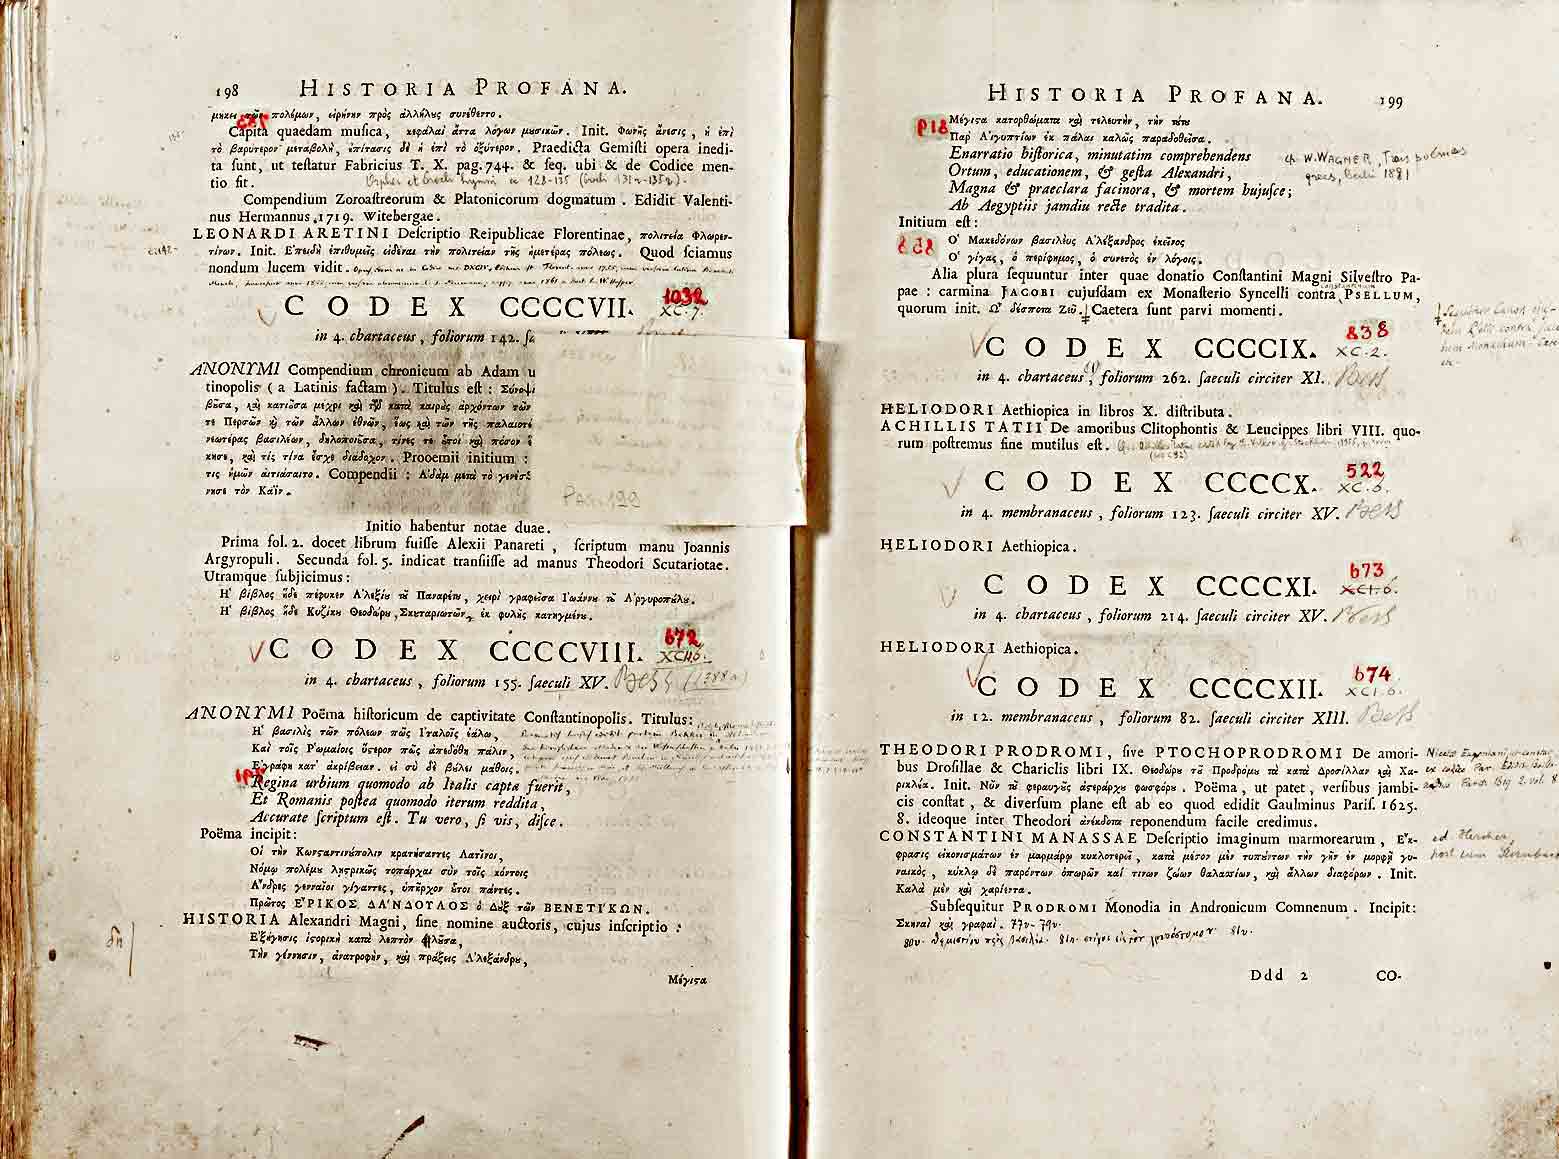 198 HISTORIA PROFANA.
μηκει τῶν πολέμων, εἰρήνην πρὸς ἀλλήλυς συνέθεντο.
Capita quaedam musica, κεφάλαι ἄττα λόγων μυσικῶν. Init. Φωνῆς ἄνεσις, ἡ ἐπὶ
τὸ βαρύτερον μεταβολή, ἐπίτασις δὲ ἡ ἐπὶ τὸ ὀξύτερον. Praedicta Gemisti opera inedi-
ta sunt, ut testatur Fabricius T. X. pag. 744. & seq. ubi & de Codice men-
tio fit.
Compendium Zoroastreorum & Platonicorum dogmatum. Edidit Valenti-
nus Hermannus 1719. Witebergae.
LEONARDI ARETINI Descriptio Reipublicae Florentinae, πολιτεία Φλωρεν-
τίνων. Init. Ε'πειδὴ ἐπιθυμεῖς εἰδέναι τὴν πολιτείαν τῆς ἡμετέρας πόλεως. Quod sciamus
nondum lucem vidit.
CODEX CCCCVII. 1032
XC. 7.
in 4. chartaceus, foliorum 142.
ANONYMI Compendium chronicum ab Adam u
tinopolis (a Latinis factam). Titulus est: Σύνοψι
βῦσα, καὶ κατιῦσα μέχρι καὶ τῦ κατὰ καιρὸς ἀρχόντων τῶν
τε Περσῶν καὶ τῶν ἄλλων ἐθνῶν, ἕως καὶ τῶν τῆς παλαιοτέ
νεωτέρας βασιλέων, δηλοποιῦσα, τίνες τε ὗτοι καὶ πόσον ἐ
κησε, καὶ τίς τίνα ἔσχε διάδοχον. Prooemii initium:
τις ὑμῶν αἰτιάσαιτο. Compendii: Α'δὰμ μετὰ τὸ γενέσθ
νησε τὸν Καΐν.
PAG. 199
Initio habentur notae duae.
Prima fol. 2. docet librum fuisse Alexii Panareti, scriptum manu Joannis
Argyropuli. Secunda fol. 5. indicat transiisse ad manus Theodori Scutariotae.
Utramque subjicimus:
Η' βίβλος ἥδε πέφυκεν Α'λεξίυ τῦ Παναρέτυ, χειρὶ γραφεῖσα Ι'ωάννυ τῦ Α'ργυροπύλυ.
Η' βίβλος ἥδε Κυζίκυ Θεοδώρυ, Σκυταριωτῶν, ἐκ φυλῆς κατηγμένυ.
CODEX CCCCVIII. 672
XCI.6.
in 4. chartaceus, foliorum 155. saeculi XV. Bess (1388a)
ANONYMI Poëma historicum de captivitate Constantinopolis. Titulus:
Η' βασιλὶς τῶν πόλεων πῶς Ι'ταλοῖς ἑάλω,
Καὶ τοῖς Ρ'ωμαίοις ὕστερον πῶς ἀπεδόθη πάλιν,
Ε'γράφη κατ' ἀκρίβειαν. εἰ σὺ δὲ βύλει μάθοις.
Regina urbium quomodo ab Italis capta fuerit,
Et Romanis postea quomodo iterum reddita,
Accurate scriptum est. Tu vero, si vis, disce.
Poëma incipit:
Οἱ τὴν Κωνσταντινύπολιν κρατήσαντες Λατῖνοι,
Νόμῳ πολέμυ λῃστρικῶς τοπάρχαι σὺν τοῖς κόντοις
Α'νδρες γενναῖοι γίγαντες, ὑπῆρχον ὗτοι πάντες.
Πρῶτος Ε'ΡΙΚΟΣ ΔΑ'ΝΔΟΥΛΟΣ ὁ Δὺξ τῶν ΒΕΝΕΤΙ'ΚΩΝ.
HISTORIA Alexandri Magni, sine nomine auctoris, cujus inscriptio:
Ε'ξήγησις ἱστορικὴ κατὰ λεπτὸν
Τὴν γέννησιν, ἀνατροφὴν, καὶ πράξεις Α'λεξάνδρυ,
Μέγιστα
HISTORIA PROFANA. 199
Μέγιστα κατορθώματα καὶ τελευτὴν, τὴν τύτυ
Παρ' Αἰγυπτίων ἐκ πάλαι καλῶς παραδοθεῖσα.
Enarratio historica, minutatim comprehendens
Ortum, educationem, & gesta Alexandri,
Magna & praeclara facinora, & mortem hujusce;
Ab Aegyptiis jamdiu recte tradita.
cf. W. WAGNER, Trois poèmes
grecs, Berlin 1881
Initium est:
Ο' Μακεδόνων βασιλεὺς Α'λέξανδρος ἐκεῖνος
Ο' γίγας, ὁ περίφημος, ὁ συνετὸς ἐν λόγοις.
Alia plura sequuntur inter quae donatio Constantini Magni Silvestro Pa-
pae: carmina JACOBI cujusdam ex Monasterio Syncelli contra PSELLUM,
quorum init. Ω' δέσποτα Ζεῦ. Caetera sunt parvi momenti.
CODEX CCCCIX. 838
XC. 2.
in 4. chartaceus, foliorum 262. saeculi circiter XI. Bess
HELIODORI Aethiopica in libros X. distributa.
ACHILLIS TATII De amoribus Clitophontis & Leucippes libri VIII. quo-
rum postremus fine mutilus est.
CODEX CCCCX. 522
XC. 6.
in 4. membranaceus, foliorum 123. saeculi circiter XV. Bess
HELIODORI Aethiopica.
CODEX CCCCXI. 673
XCI. 6.
in 4. chartaceus, foliorum 214. saeculi circiter XV. Bess
HELIODORI Aethiopica.
CODEX CCCCXII. 674
XCI. 6.
in 12. membranaceus, foliorum 82. saeculi circiter XIII. Bess
THEODORI PRODROMI, sive PTOCHOPRODROMI De amori-
bus Drosillae & Chariclis libri IX. Θεοδώρυ τῦ Προδρόμυ τὰ κατὰ Δροσίλλαν καὶ Χα-
ρικλέα. Init. Νῦν τῦ φεραυγῦς ἀστεράρχυ φωσφόρυ. Poëma, ut patet, versibus jambi-
cis constat, & diversum plane est ab eo quod edidit Gaulminus Paris. 1625.
8. ideoque inter Theodori ἀνέκδοτα reponendum facile credimus.
CONSTANTINI MANASSAE Descriptio imaginum marmorearum, Ε'κ-
φρασις εἰκονισμάτων ἐν μαρμάρῳ κυκλοτερεῖ, κατὰ μέσον μὲν τυπύντων τὴν γῆν ἐν μορφῇ γυ-
ναικὸς, κύκλῳ δὲ παρόντων ὀπωρῶν καί τινων ζώων θαλασσίων, καὶ ἄλλων διαφόρων. Init.
Καλὰ μὲν καὶ χαρίεντα.
ed. Hercher,
Subsequitur PRODROMI Monodia in Andronicum Comnenum. Incipit:
Σκηναὶ καὶ γραφαί.
Ddd 2 CO-